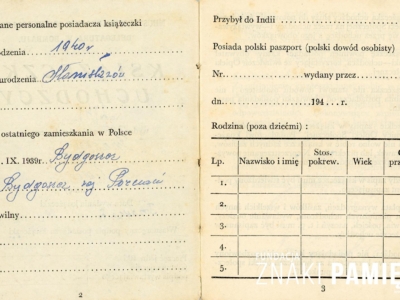 ane personalne posiadacza książeczki
odzenia 1940r
arodzenia Stanisławów
ostatniego zamieszkania w Polsce
. IX. 1939r. Bydgoszcz
Bydgoszcz woj Poznań
wilny
2
Przybył do Indii
Posiada polski paszport (polski dowód osobisty)
Nr. wydany przez
dn. 194 . . . r.
Rodzina (poza dziećmi) :
Lp. Nazwisko i imię Stos. pokrew. Wiek
1.
2.
3.
4.
5.
3
ZNAKI PAMIĘ